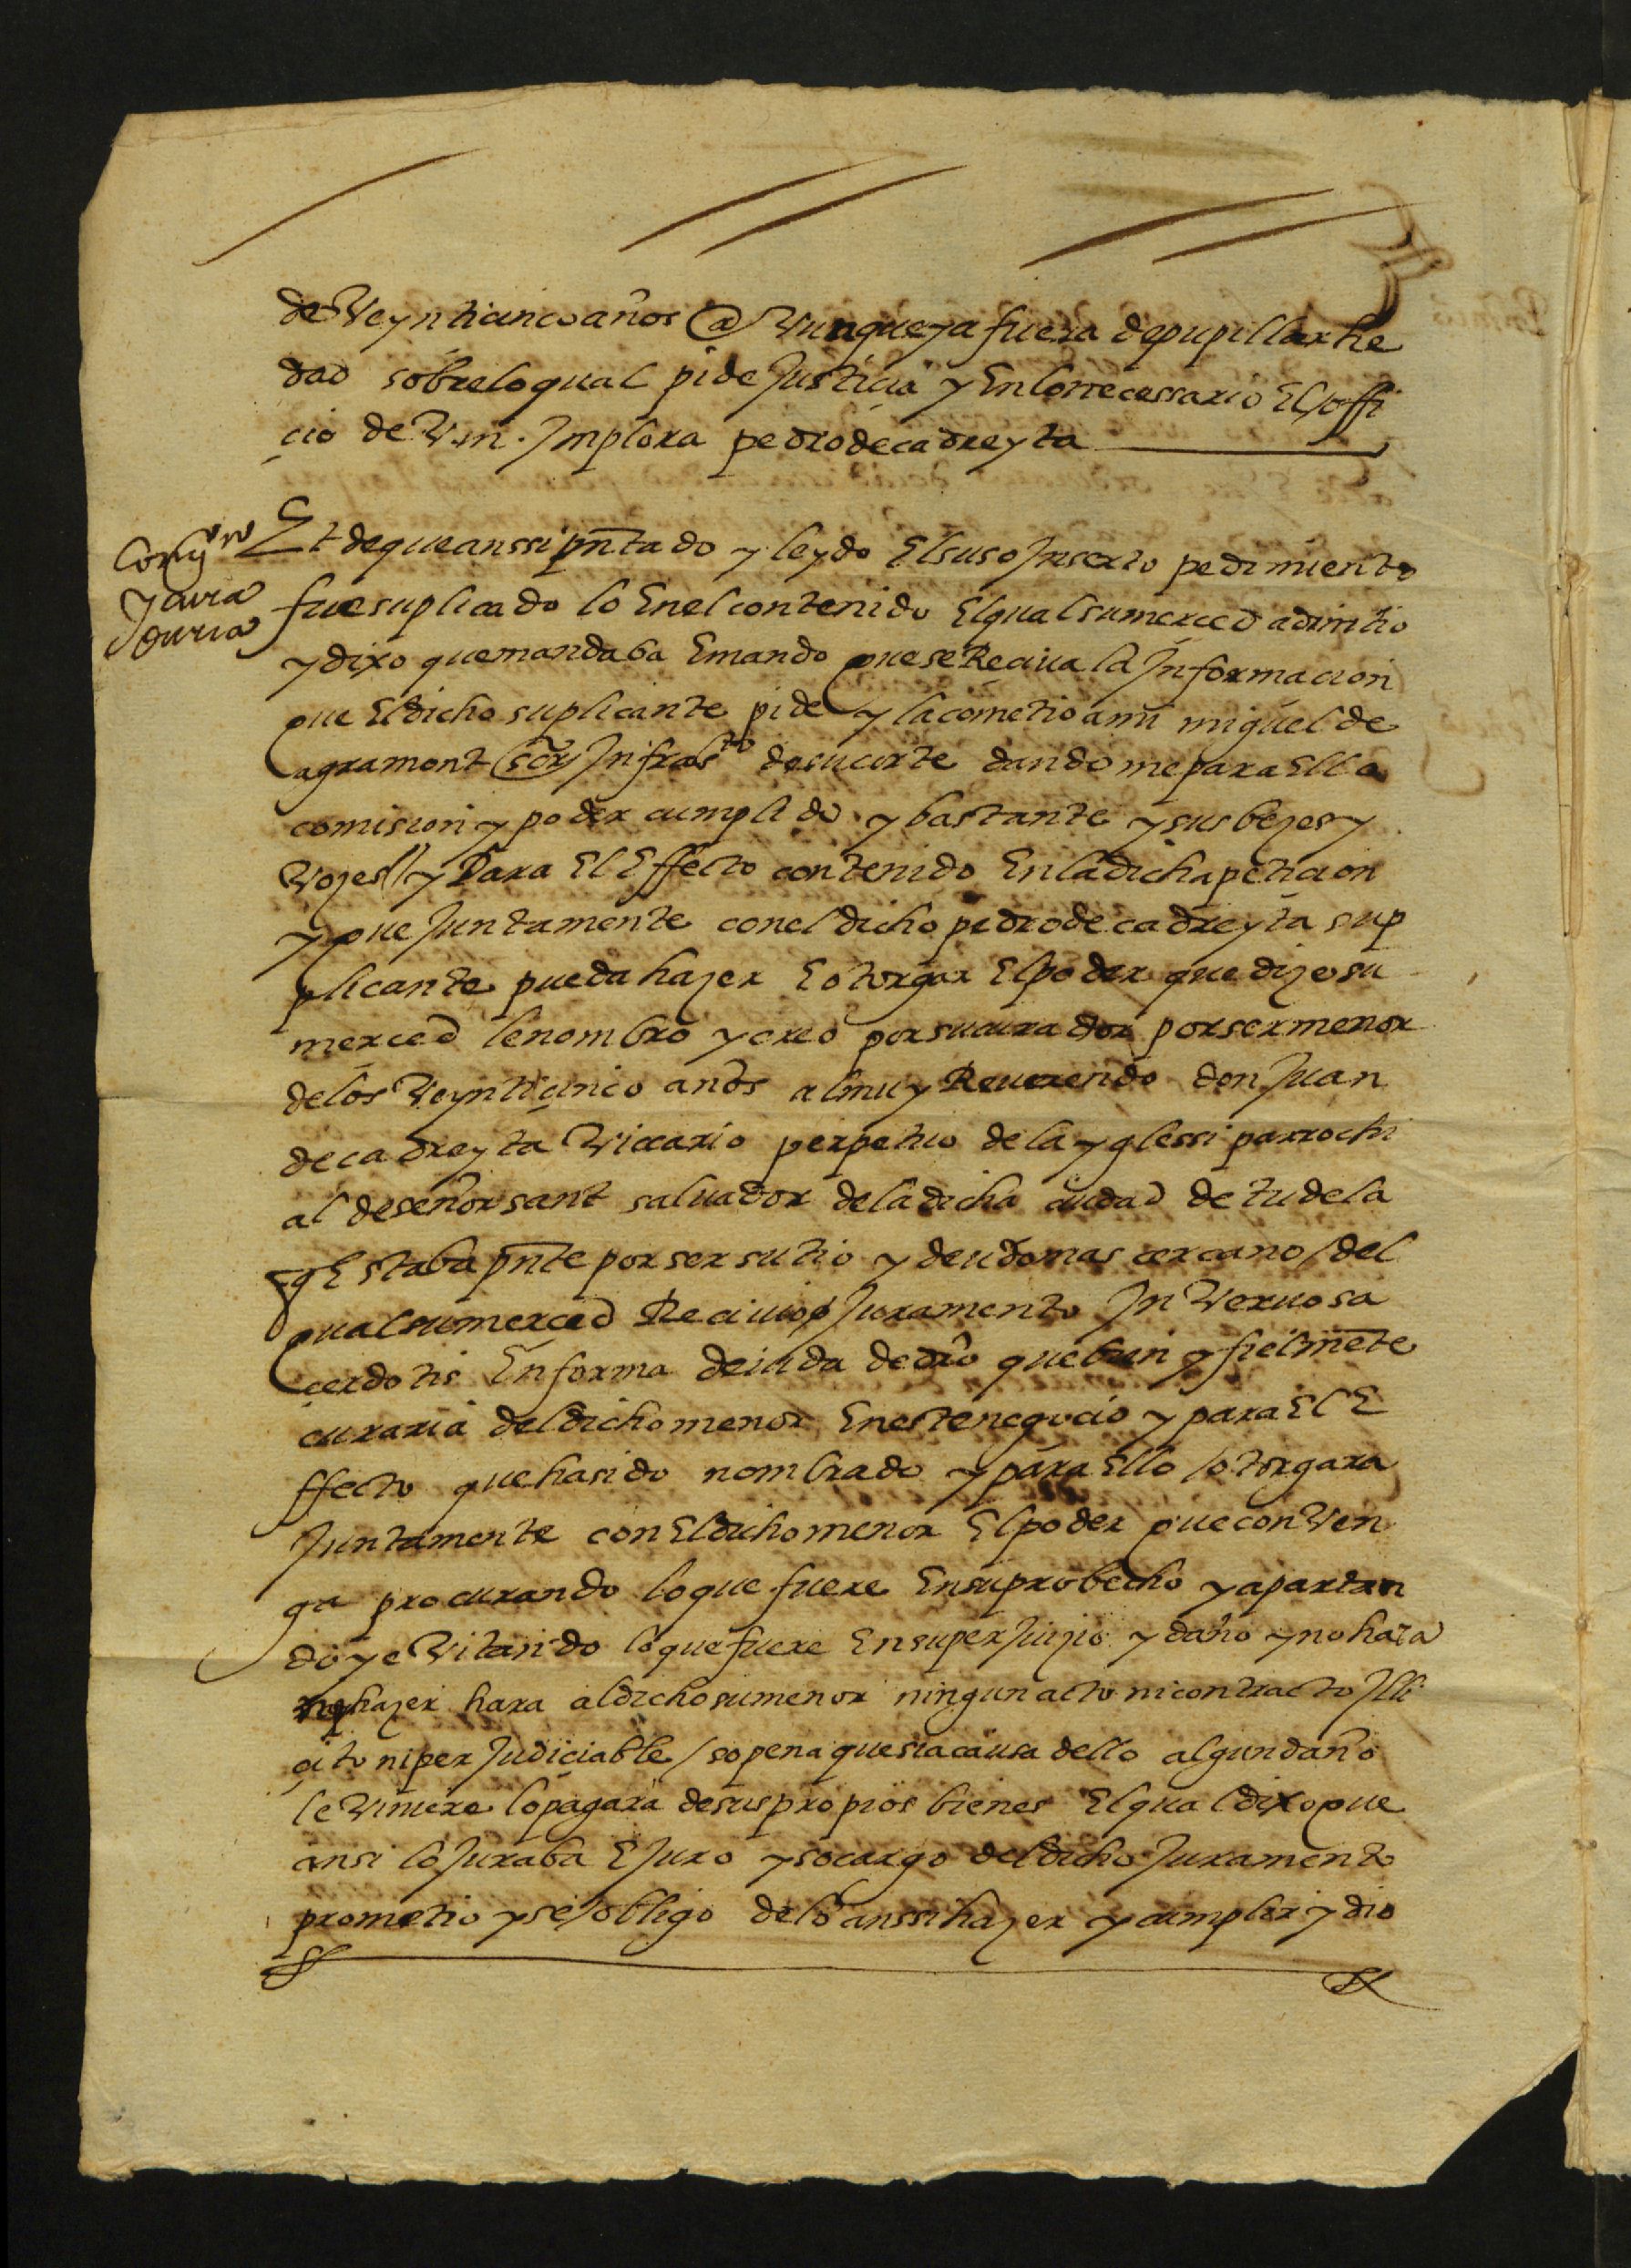 de Veynticinco años @ Vunque ya fuera de pupillar he
dad sobre lo qual pide Justicia y En lo necessario El offi
cio de V.m. Implora pedro de cadreyta
Et de que anssi pñtado y leydo El suso Inserto pedimiento
fue suplicado lo En el contenido El qual su merced admitio
y dixo que mandaba E mando que se Reciua la Informacion
que El dicho suplicante pide y la cometio a mi miguel de
agramont scr Infrasto de su corte dandome para Ello
comision y poder cumplido y bastante y sus bezes y
Vozes // y Para El Effecto contenido En la dicha peticion
y que Juntamente con el dicho pedro de cadreyta sup
plicante pueda hazer E otorgar El poder que dize su
merced le nombro y creo por su curador por ser menor
de los Veynticinco años al muy Reuerendo don Juan
de cadreyta Viccario perpetuo de la yglessi parrochi
al de señor sant saluador de la dicha ciudad de tudela
q Estaba pñte por ser su tio y deudo mas cercano / del
qual su merced Reciuio Juramento In Veruo sa
cerdotis En forma deiuda de dro que bien y fielmẽte
curaria del dicho menor En este negocio y para El E
ffecto que ha sido nombrado y para Ello / otorgara
Juntamente con El dicho menor El poder que conVen
ga procurando lo que fuere En su probecho y apartan
do y eVitando lo que fuere En su perJuizio y daño y no hara
hazer hara al dicho su menor ningun acto ni contracto Illi
cito ni perJudiciable / so pena que si a causa dello algun daño
le Viniere lo pagara de sus propios bienes El qual dixo que
ansi lo Juraba E Juro y so cargo del dicho Juramento
prometio y se / obligo de lo anssi hazer y cumplir y dio